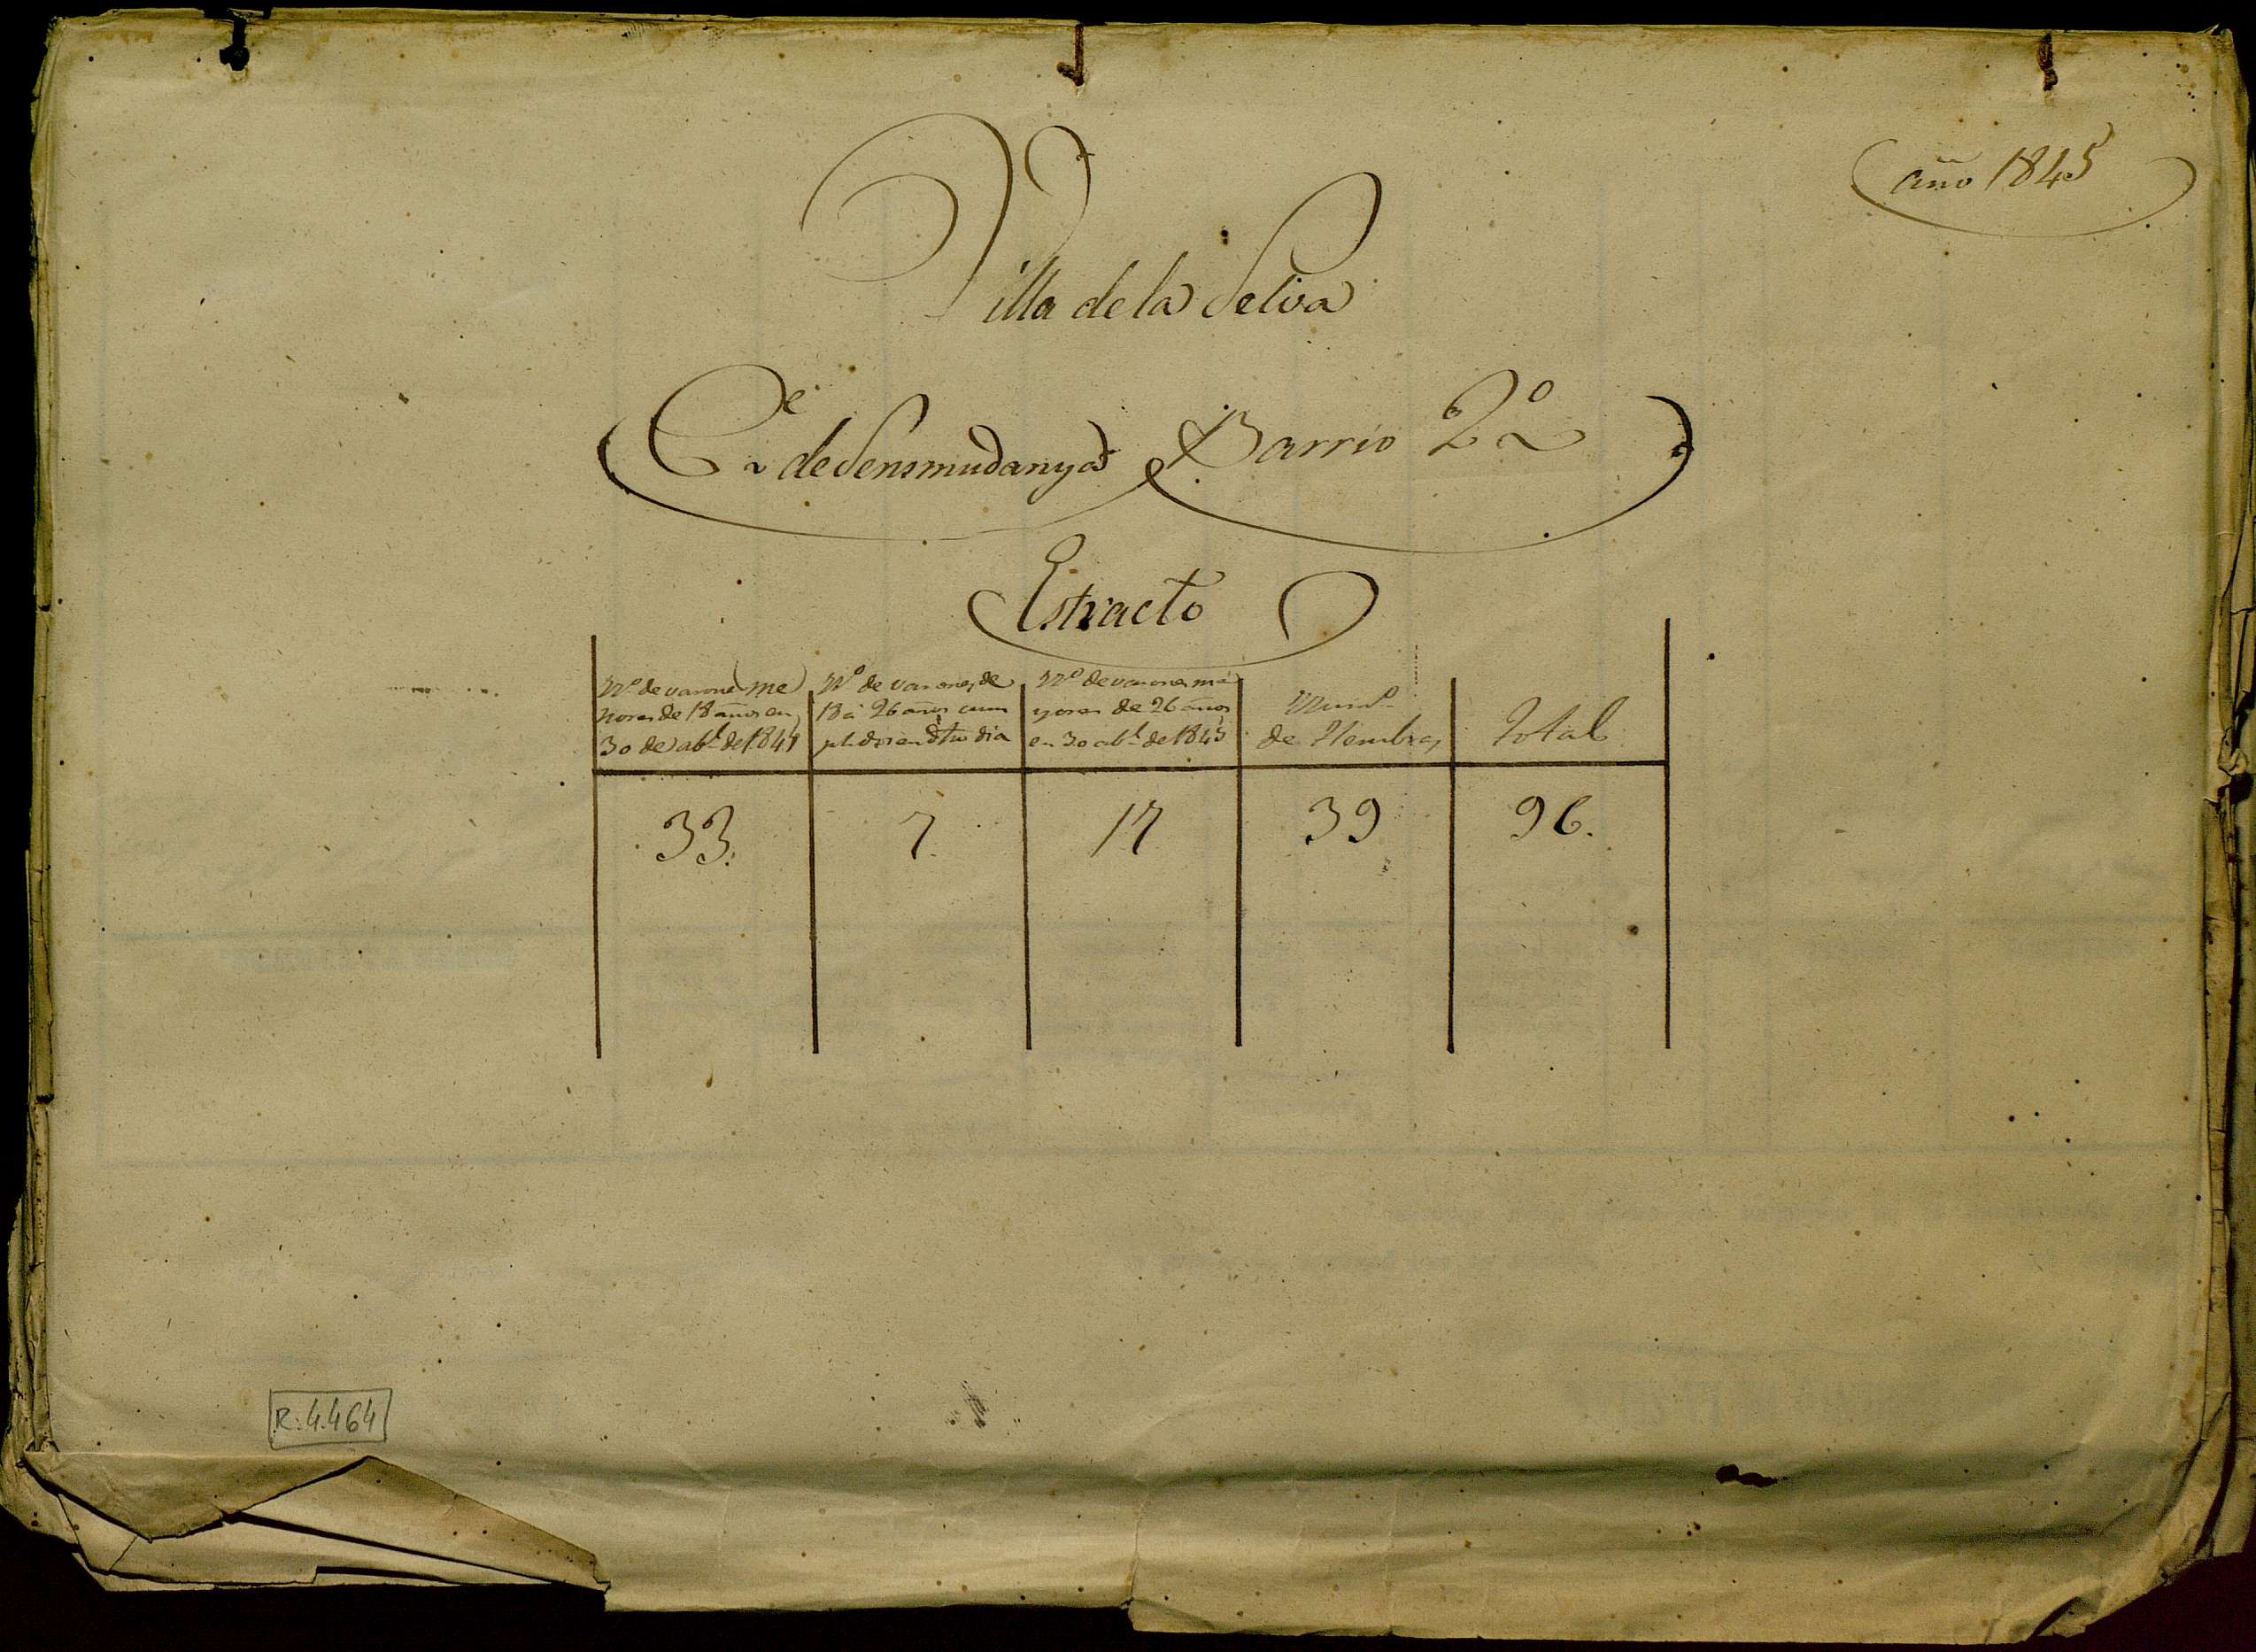 año 1845
Villa de la Selva
C.e de Sensmudanyas Barrio 2º
Estracto
Nº de varones me
nores de 18 años en
30 de ab.l de 1845
Nº de varones de
18 á 26 años cum
plidos en dho dia
Nº de varones ma
yores de 26 años
en 30 ab.l de 1845
Num.o
de Hembras
Total
33.
7.
17
39
96.
R. 4.464